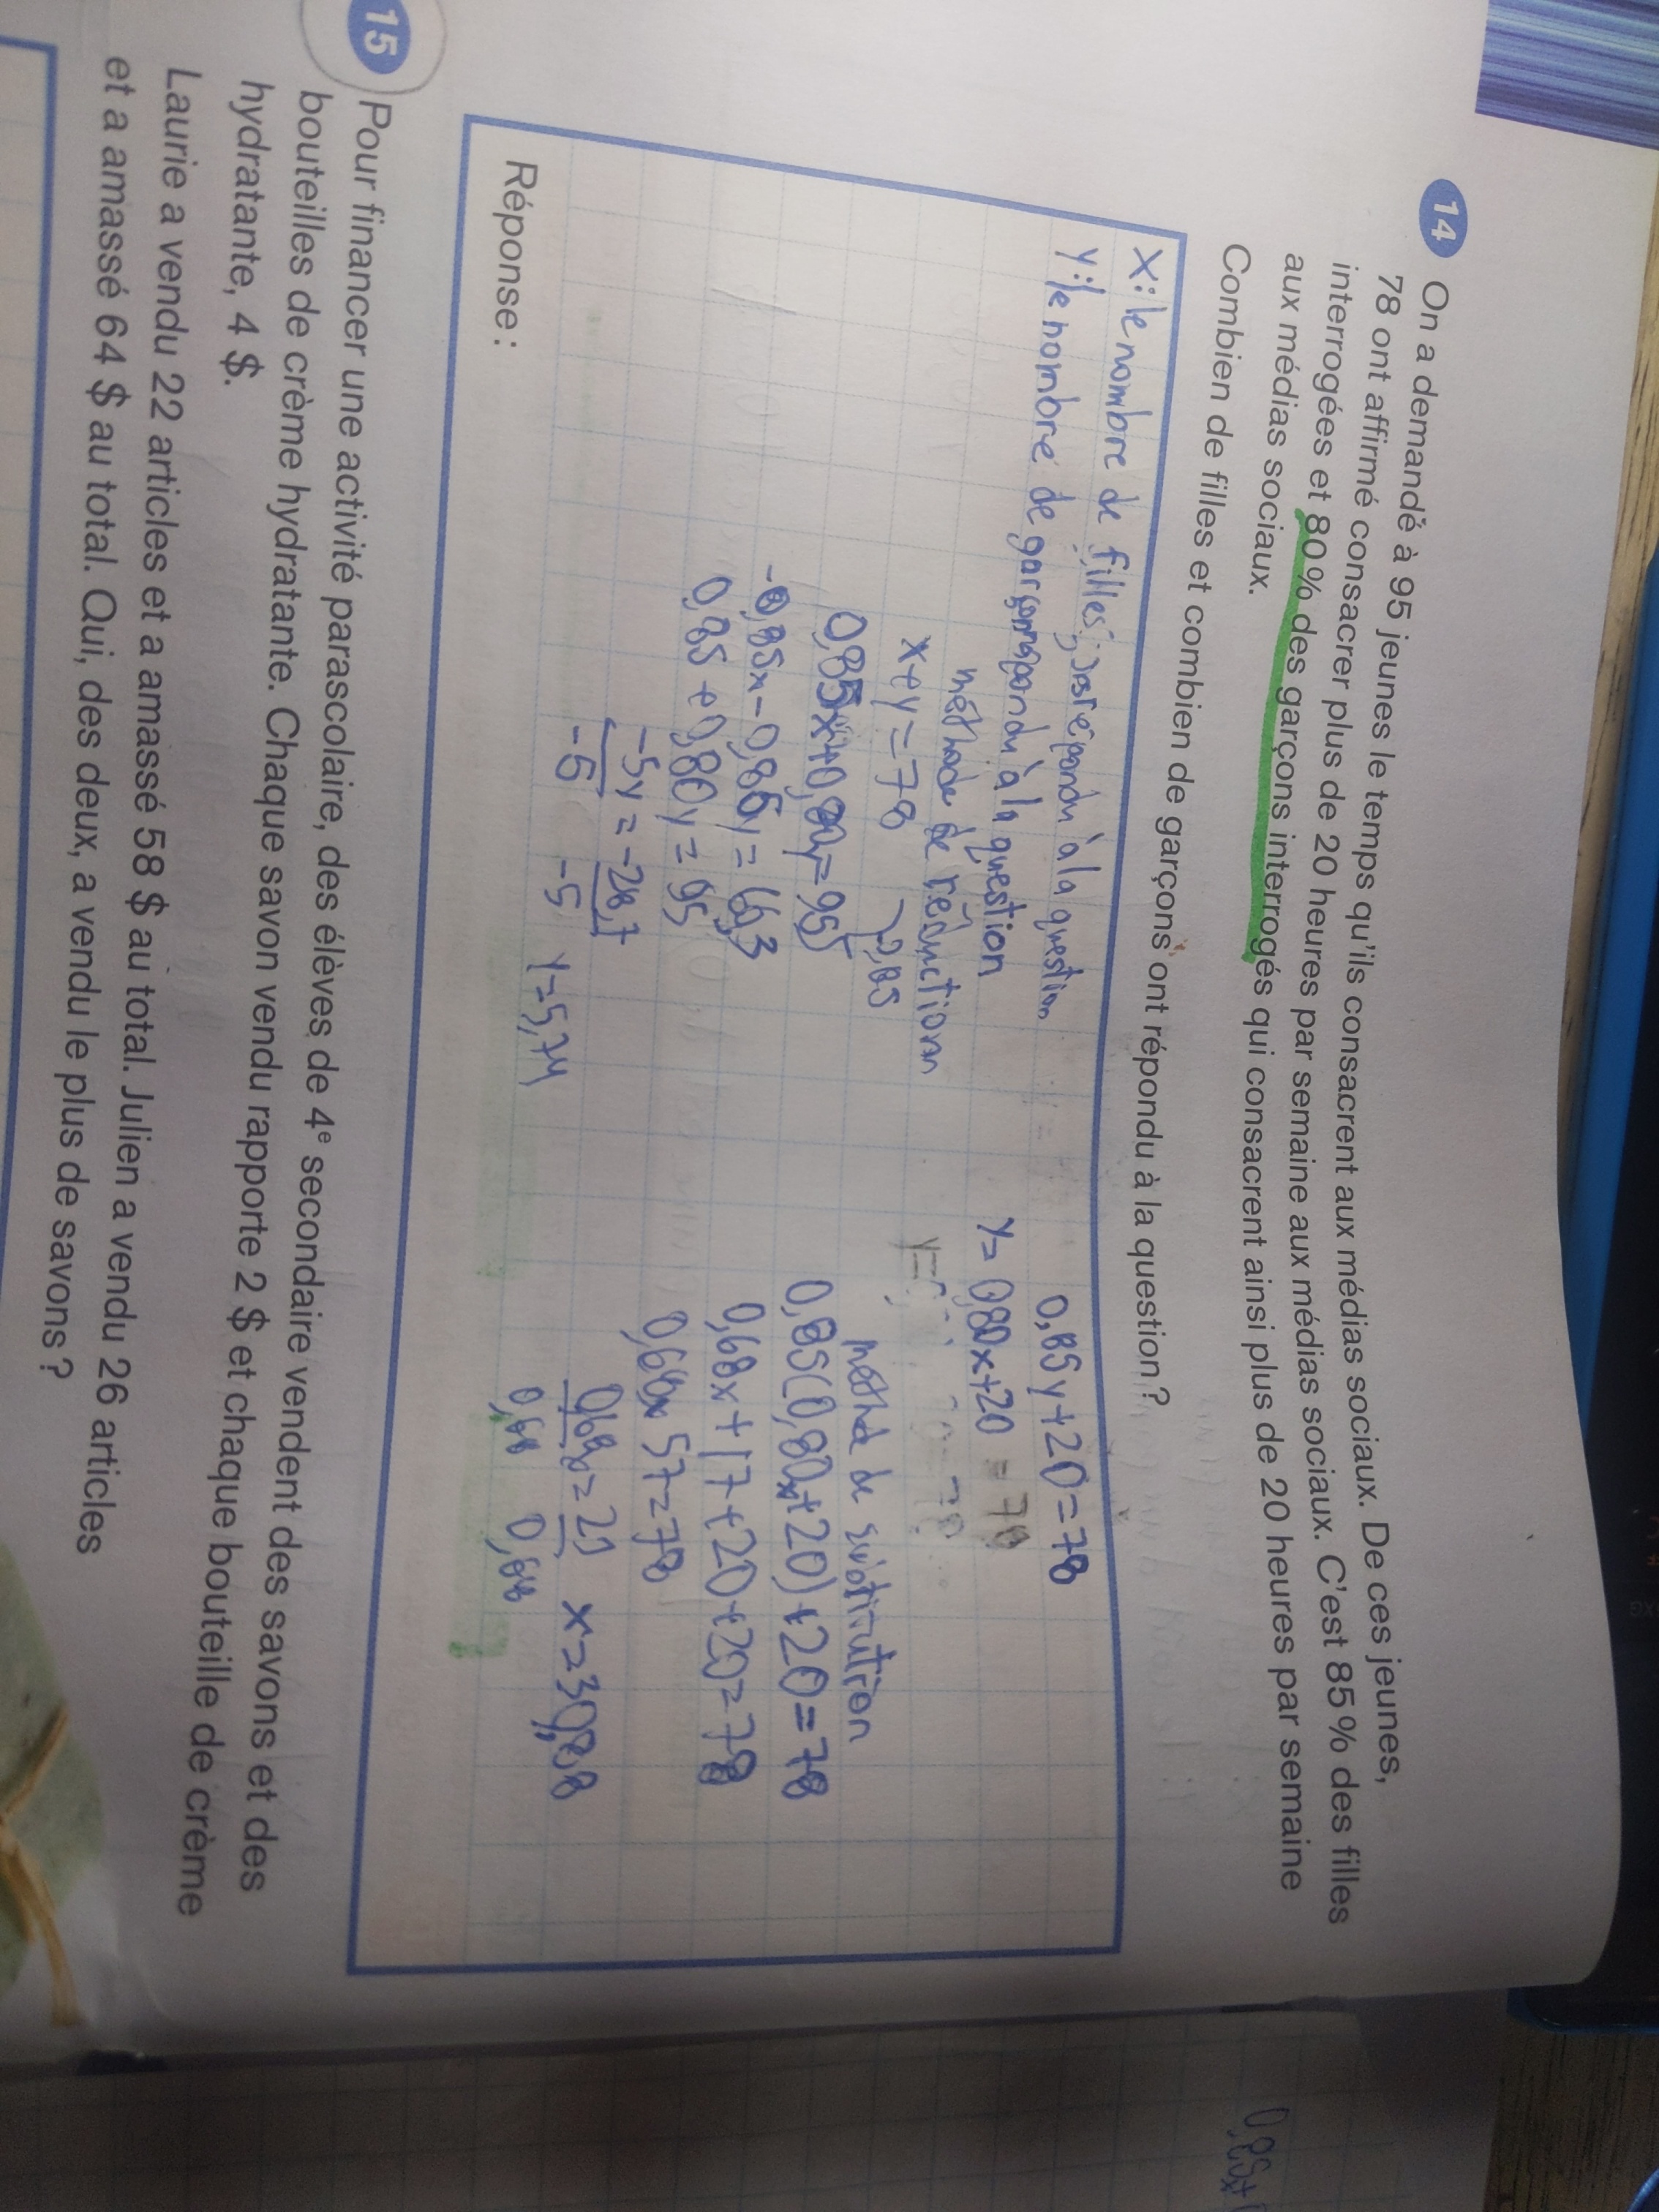 14 On a demandé à 95 jeunes le temps qu'ils consacrent aux médias sociaux. De ces jeunes,
78 ont affirmé consacrer plus de 20 heures par semaine aux médias sociaux. C'est 85 % des filles
interrogées et 80 % des garçons interrogés qui consacrent ainsi plus de 20 heures par semaine
aux médias sociaux.
Combien de filles et combien de garçons ont répondu à la question ?
x: le nombre de filles répondu à la question
y: le nombre de garçons répondu à la question
méthode de réduction
x+y=78
0,85x+0,80y=95
-0,85x-0,85y=66,3
0,85+0,80y=95
-5y=-28,7
-5 -5 y=5,74
0,85y+20=78
y=0,80x+20 =78
y=
0,85(0,80x+20)+20=78
0,68x+17+20+20=78
0,68x 57=78
0,68x=21 x=30,88
0,68 0,68
Réponse :
15 Pour financer une activité parascolaire, des élèves de 4e secondaire vendent des savons et des
bouteilles de crème hydratante. Chaque savon vendu rapporte 2 $ et chaque bouteille de crème
hydratante, 4 $.
Laurie a vendu 22 articles et a amassé 58 $ au total. Julien a vendu 26 articles
et a amassé 64 $ au total. Qui, des deux, a vendu le plus de savons ?